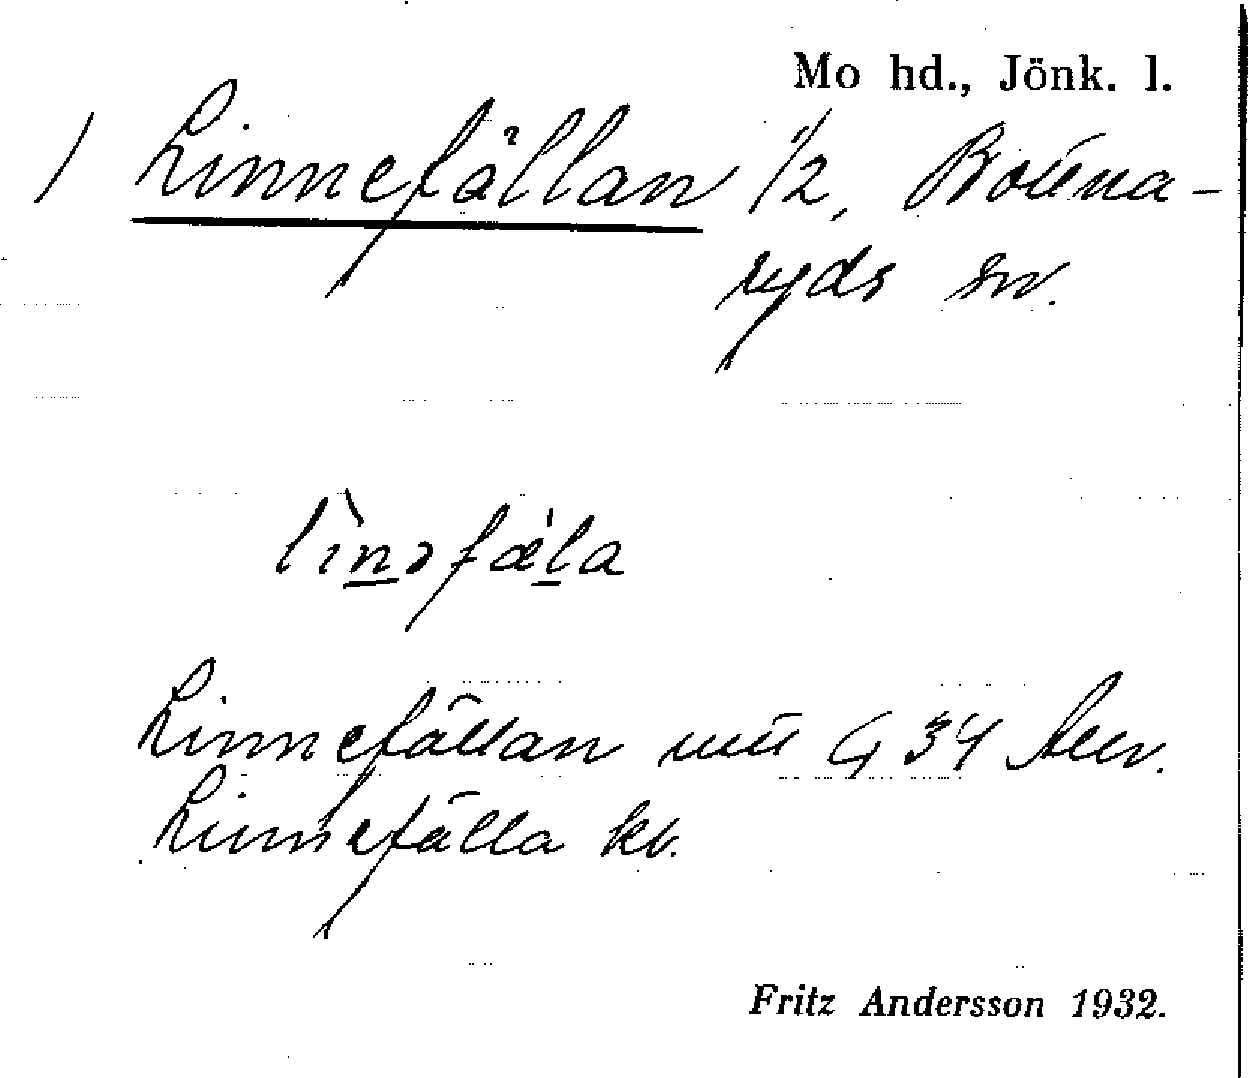 Mo hd., Jönk. l.
/ Linnefällan 1/2, Bottna-
ryds sn.
lìnəfæ̀la
Linnefällan mtl G 34
Linnefälla kv.
Fritz Andersson 1932.